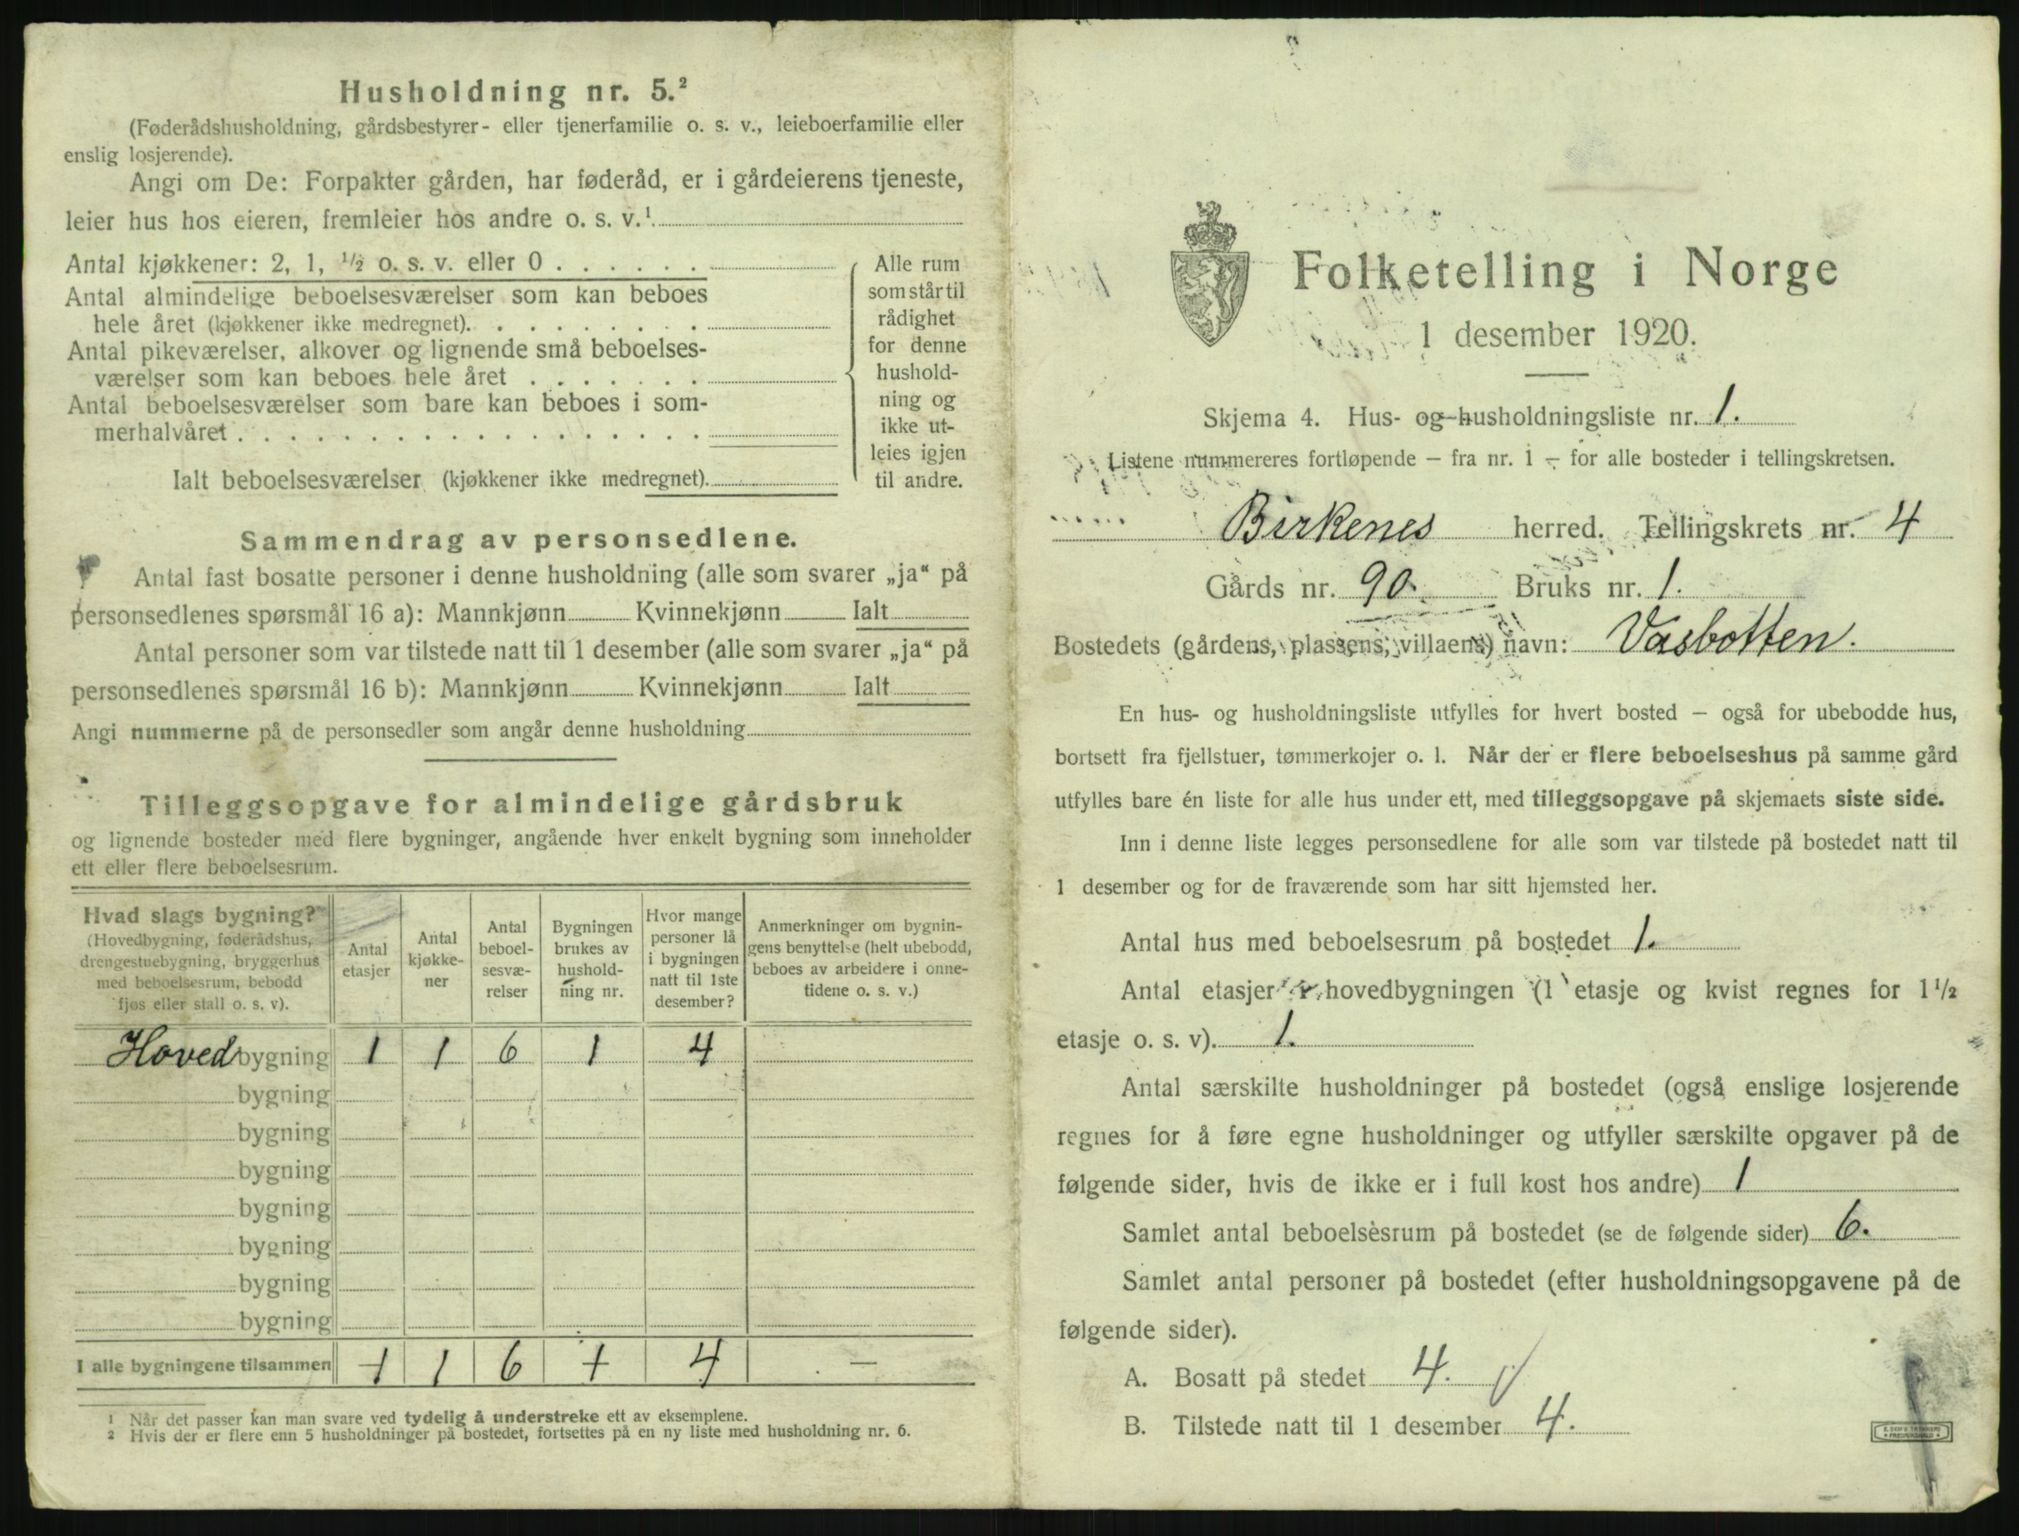 Husholdning nr. 5.²
(Føderådshusholdning, gårdsbestyrer- eller tjenerfamilie o. s. v., leieboerfamilie eller
enslig losjerende).
Angi om De: Forpakter gården, har føderåd, er i gårdeierens tjeneste,
leier hus hos eieren, fremleier hos andre o. s. v.¹
Antal kjøkkener: 2, 1, ½ o. s. v. eller 0 . . . . . .
Antal almindelige beboelsesværelser som kan beboes
hele året (kjøkkener ikke medregnet). . . . . . . . .
Antal pikeværelser, alkover og lignende små beboelses-
værelser som kan beboes hele året . . . . . . .
Antal beboelsesværelser som bare kan beboes i som-
merhalvåret . . . . . . . . . . . . . . . . . .
Ialt beboelsesværelser (kjøkkener ikke medregnet).
Alle rum
som står til
rådighet
for denne
hushold-
ning og
ikke ut-
leies igjen
til andre.
Sammendrag av personsedlene.
Antal fast bosatte personer i denne husholdning (alle som svarer „ja“ på
personsedlenes spørsmål 16 a): Mannkjønn Kvinnekjønn Ialt
Antal personer som var tilstede natt til 1 desember (alle som svarer „ja“ på
personsedlenes spørsmål 16 b): Mannkjønn Kvinnekjønn Ialt
Angi nummerne på de personsedler som angår denne husholdning
Tilleggsopgave for almindelige gårdsbruk
og lignende bosteder med flere bygninger, angående hver enkelt bygning som inneholder
ett eller flere beboelsesrum.
Hvad slags bygning?
(Hovedbygning, føderådshus,
drengestuebygning, bryggerhus
med beboelsesrum, bebodd
fjøs eller stall o. s. v).
Antal
etasjer
Antal
kjøkke-
ner
Antal
beboel-
sesvæ-
relser
Bygningen
brukes av
hushold-
ning nr.
Hvor mange
personer lå
i bygningen
natt til 1ste
desember?
Anmerkninger om bygnin-
gens benyttelse (helt ubebodd,
beboes av arbeidere i onne-
tidene o. s. v.)
Hovedbygning 1 1 6 1 4
bygning
bygning
bygning
bygning
bygning
bygning
bygning
I alle bygningene tilsammen 1 1 6 1 4 —
1 Når det passer kan man svare ved tydelig å understreke ett av eksemplene.
2 Hvis der er flere enn 5 husholdninger på bostedet, fortsettes på en ny liste med husholdning nr. 6.
Folketelling i Norge
1 desember 1920.
Skjema 4. Hus- og husholdningsliste nr. 1.
Listene nummereres fortløpende – fra nr. 1 – for alle bosteder i tellingskretsen.
Birkenes herred. Tellingskrets nr. 4
Gårds nr. 90. Bruks nr. 1.
Bostedets (gårdens, plassens, villaens) navn: Vasbotten.
En hus- og husholdningsliste utfylles for hvert bosted – også for ubebodde hus,
bortsett fra fjellstuer, tømmerkojer o. l. Når der er flere beboelseshus på samme gård
utfylles bare én liste for alle hus under ett, med tilleggsopgave på skjemaets siste side.
Inn i denne liste legges personsedlene for alle som var tilstede på bostedet natt til
1 desember og for de fraværende som har sitt hjemsted her.
Antal hus med beboelsesrum på bostedet 1.
Antal etasjer i hovedbygningen (1 etasje og kvist regnes for 1½
etasje o. s. v). 1.
Antal særskilte husholdninger på bostedet (også enslige losjerende
regnes for å føre egne husholdninger og utfyller særskilte opgaver på de
følgende sider, hvis de ikke er i full kost hos andre) 1
Samlet antal beboelsesrum på bostedet (se de følgende sider) 6.
Samlet antal personer på bostedet (efter husholdningsopgavene på de
følgende sider).
A. Bosatt på stedet 4.
B. Tilstede natt til 1 desember 4.